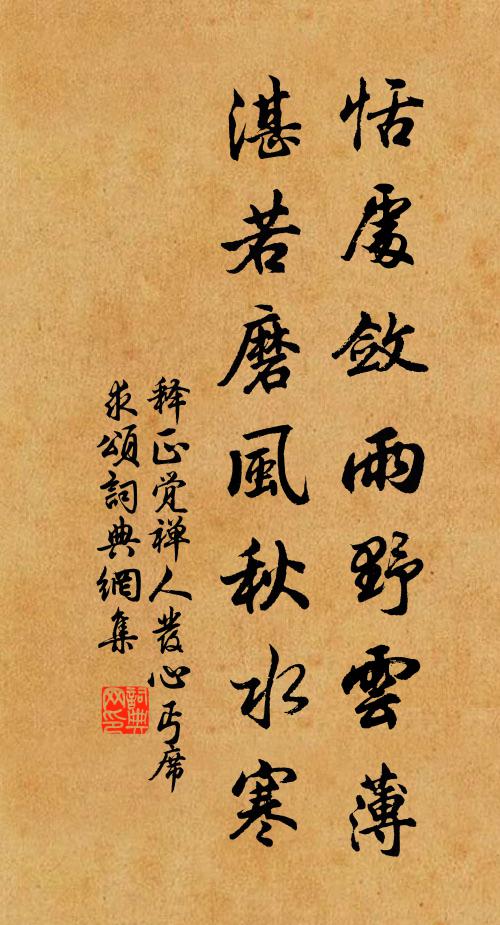 恬處斂雨野雲薄
湛若磨風秋水寒
释正觉禅人發心丐席
求頌詞典網集
詞典网印